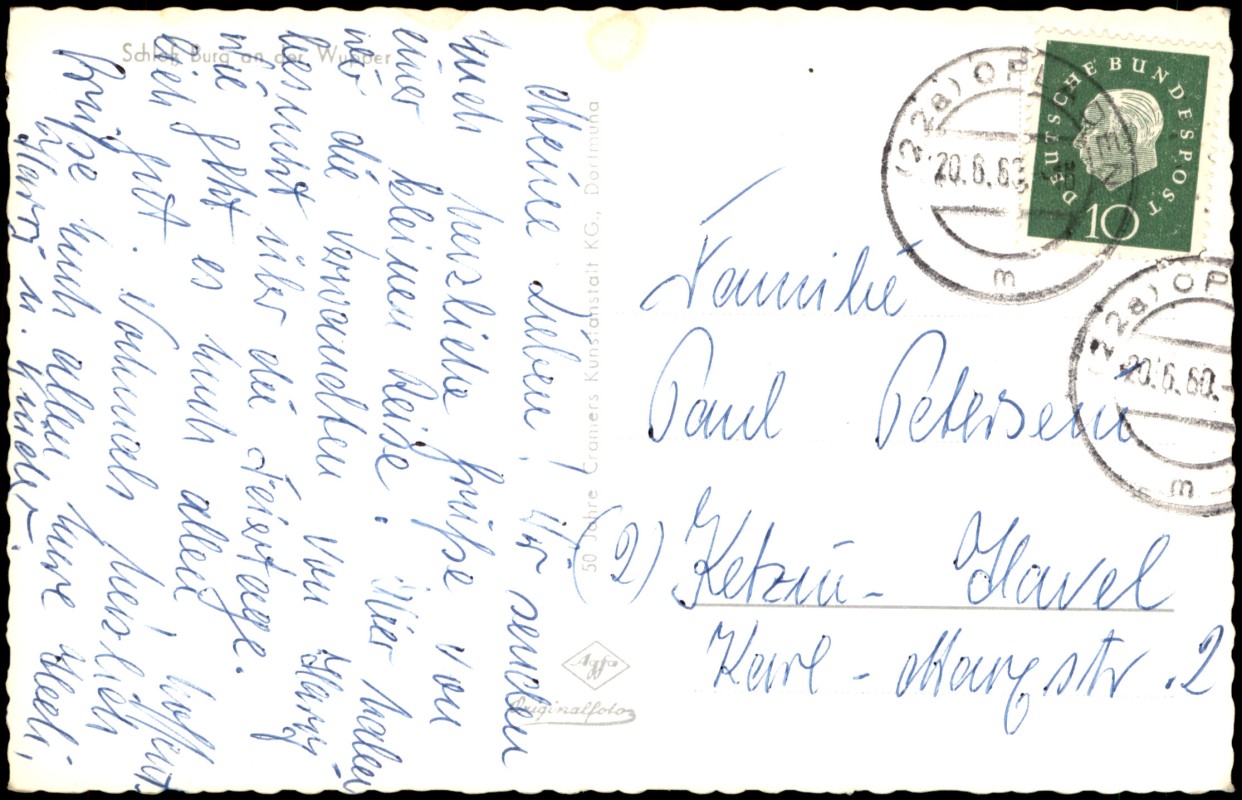 Schloß Burg an der Wupper
Meine Lieben! Wir senden
Euch herzliche Grüße von
einer kleinen Reise. Hier haben
wir die Verwandten von Harry
besucht über die Feiertage.
wie geht es Euch allen hoffent-
lich gut. Nochmals herzlich
Grüße Euch allen Eure Hedi,
Harry u. Kinder.
50 Jahre Cramers Kunstanstalt KG, Dortmund
Agfa
Originalfoto
DEUTSCHE BUNDESPOST
10
(22a) OPLADEN
20.6.60.
m
(22a) OP
20.6.60.-
m
Familie
Paul Petersein
(2) Ketzin - Havel
Karl - Marxstr. 2